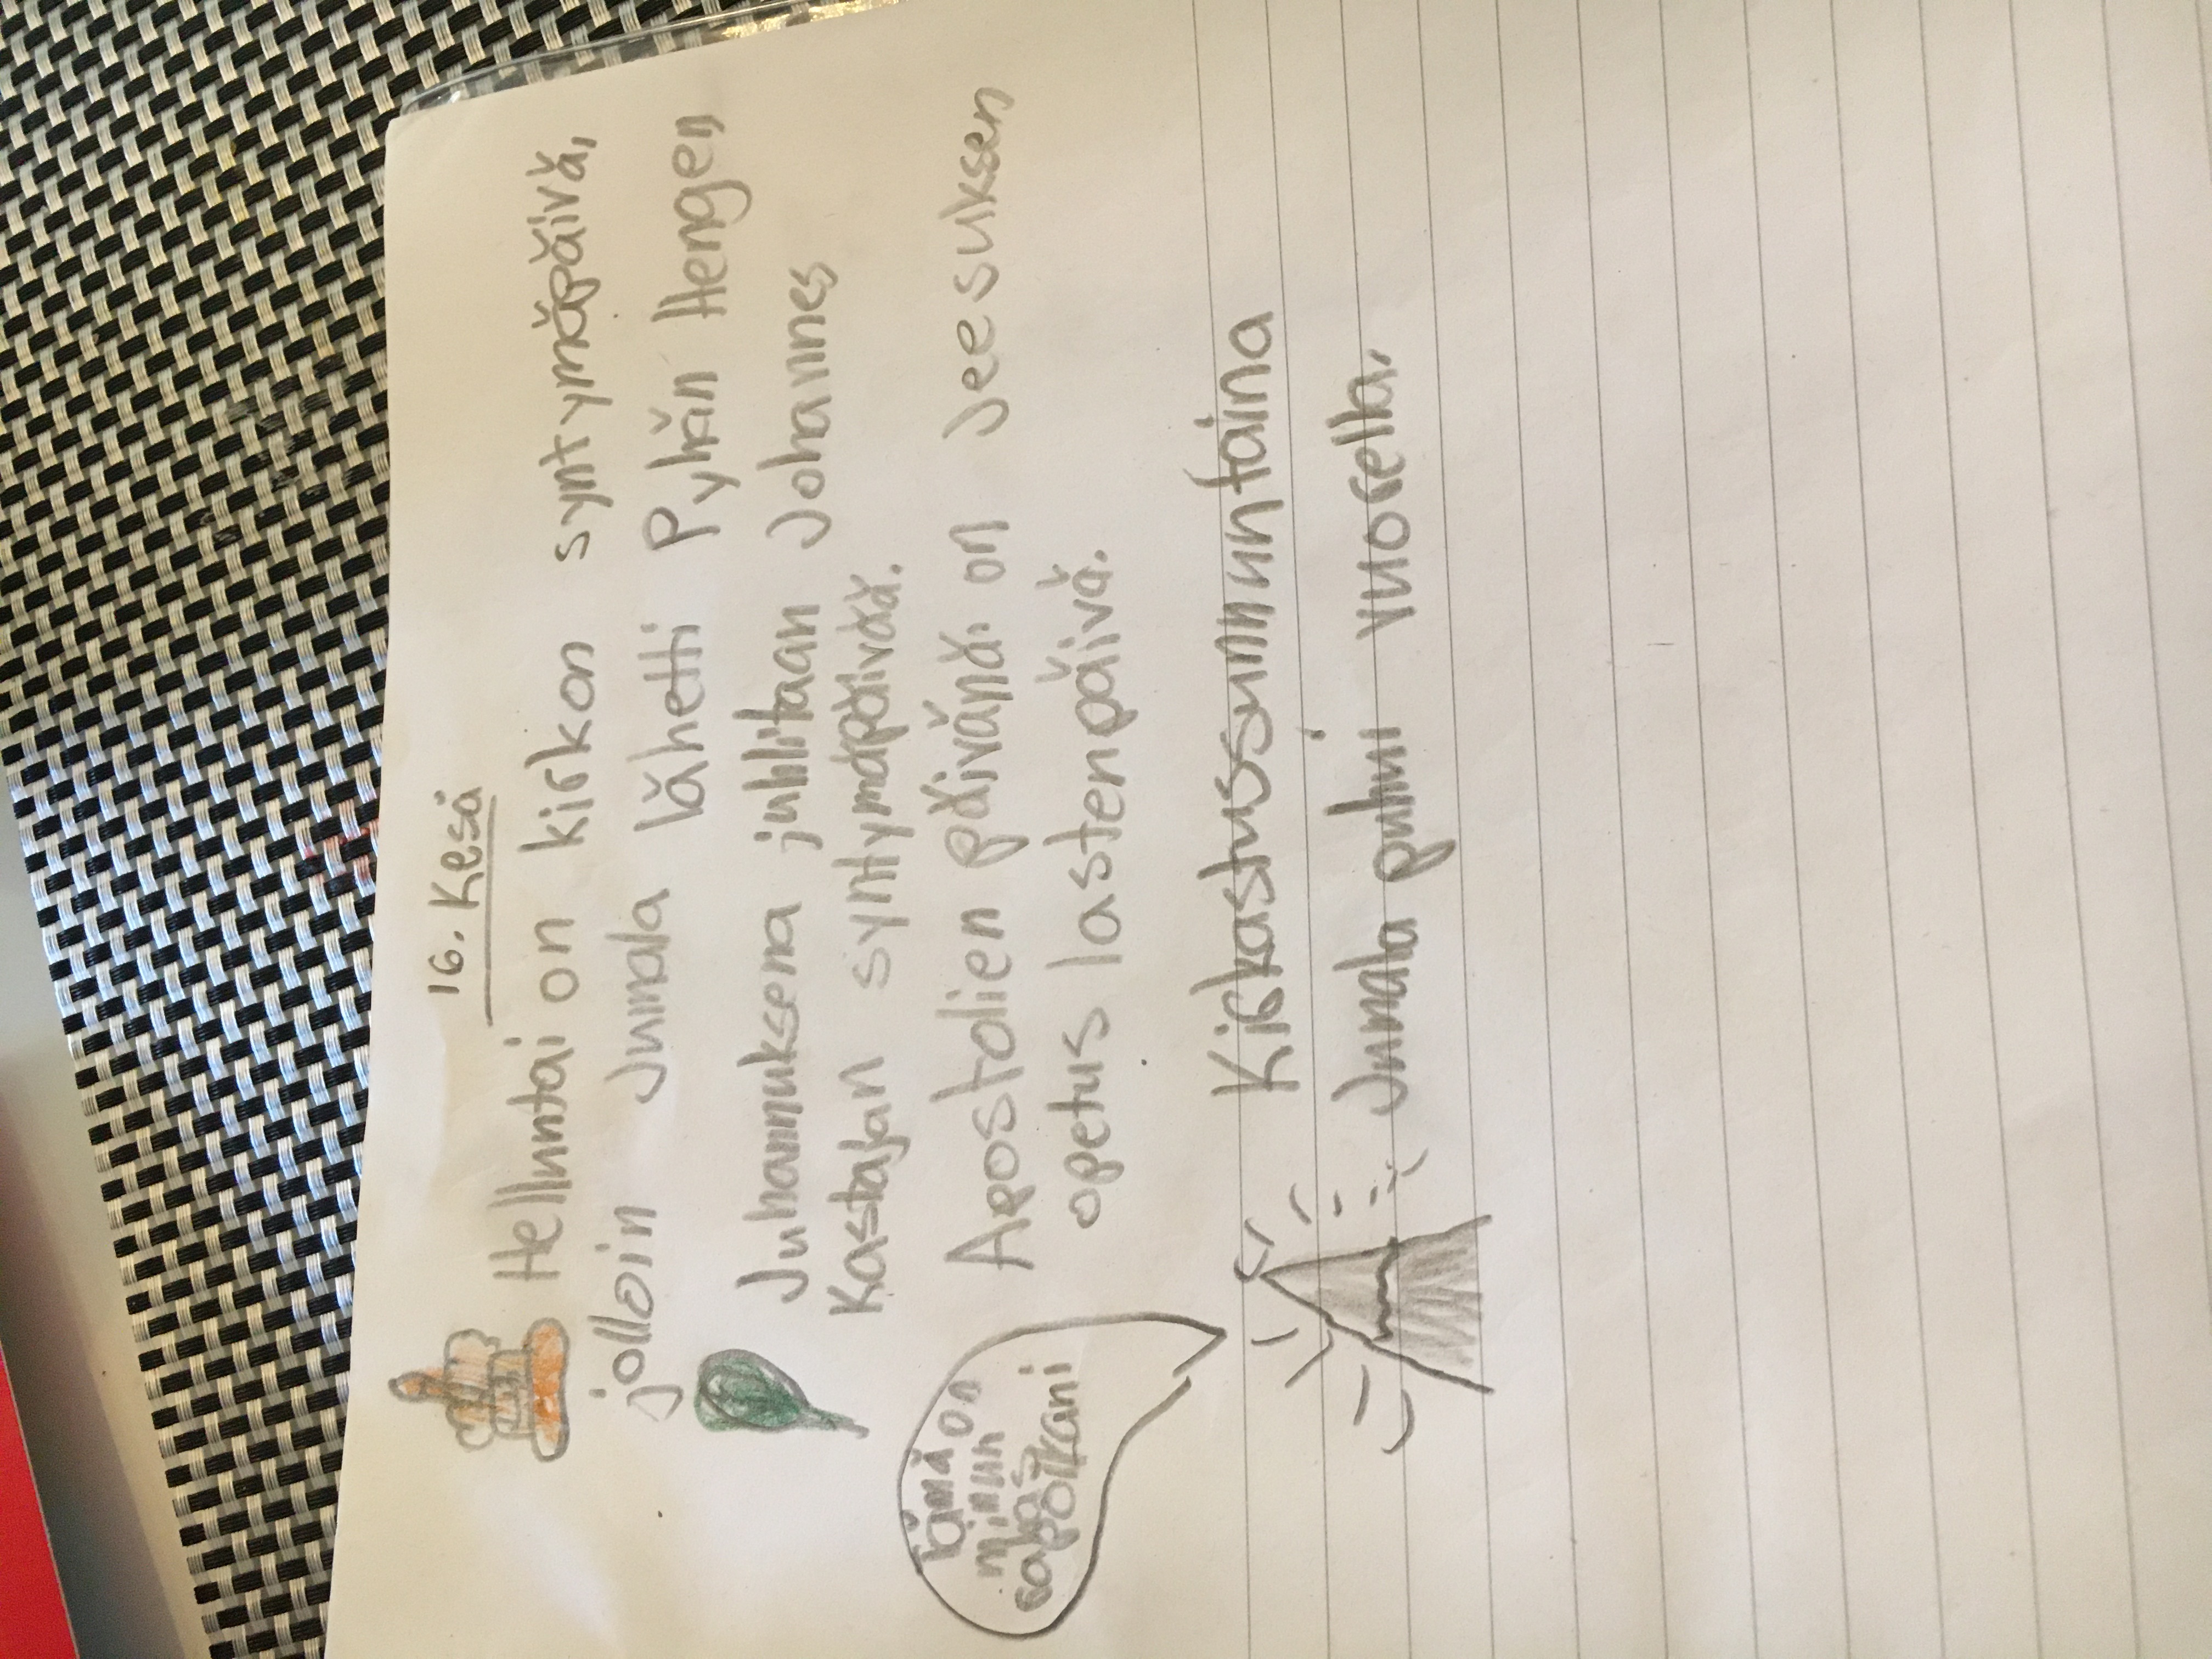 16. Kesä
Helluntai on kirkon syntymäpäivä,
jolloin Jumala lähetti Pyhän Hengen
Juhannuksena juhlitaan Johannes
Kastajan syntymäpäivää.
Apostolien päivänä. on Jeesuksen
opetus lastenpäivä.
tämä on
minun
rakas
poikani
Kirkastussunnuntaina
Jumala puhui vuorella.